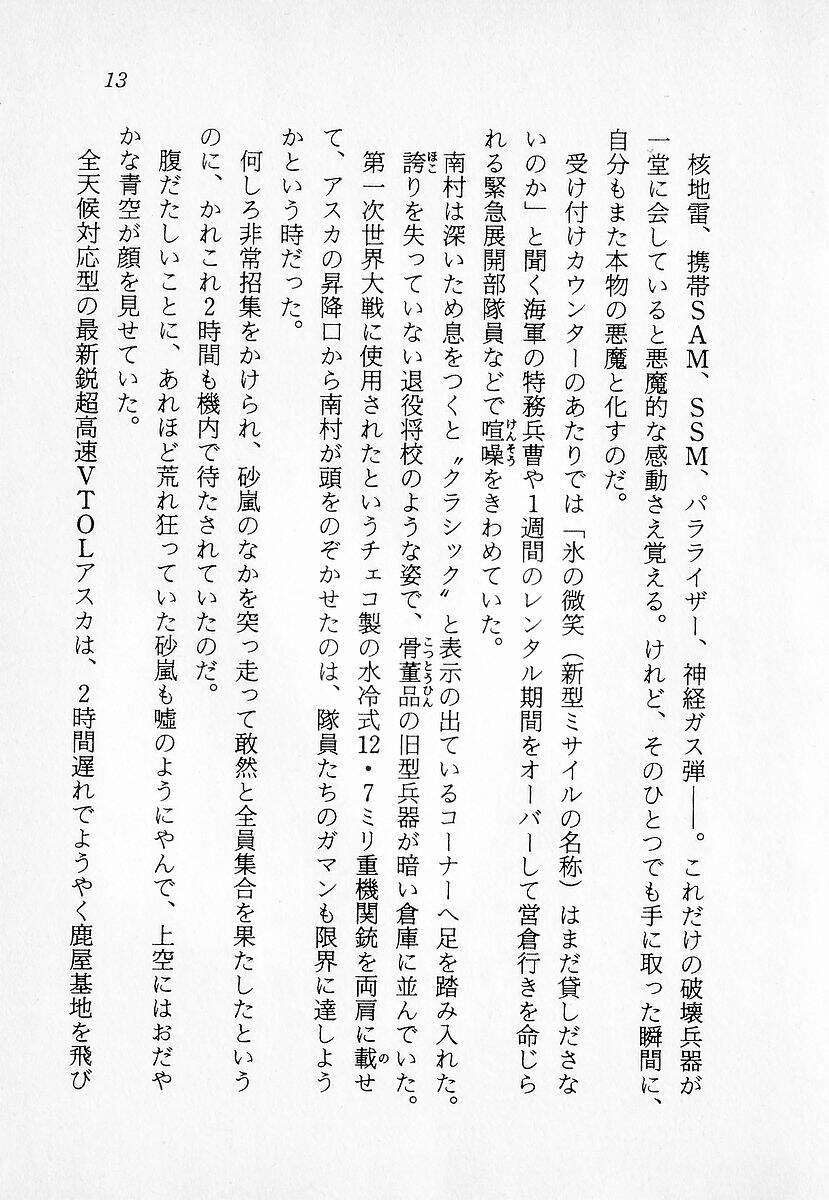 13
核地雷、携帯SAM、SSM、パラライザー、神経ガス弾――。これだけの破壊兵器が
一堂に会していると悪魔的な感動さえ覚える。けれど、そのひとつでも手に取った瞬間に、
自分もまた本物の悪魔と化すのだ。
受け付けカウンターのあたりでは「氷の微笑（新型ミサイルの名称）はまだ貸しださな
いのか」と聞く海軍の特務兵曹や1週間のレンタル期間をオーバーして営倉行きを命じら
れる緊急展開部隊員などで喧噪をきわめていた。
南村は深いため息をつくと〝クラシック〟と表示の出ているコーナーへ足を踏み入れた。
誇りを失っていない退役将校のような姿で、骨董品の旧型兵器が暗い倉庫に並んでいた。
第一次世界大戦に使用されたというチェコ製の水冷式12・7ミリ重機関銃を両肩に載せ
て、アスカの昇降口から南村が頭をのぞかせたのは、隊員たちのガマンも限界に達しよう
かという時だった。
何しろ非常招集をかけられ、砂嵐のなかを突っ走って敢然と全員集合を果たしたという
のに、かれこれ2時間も機内で待たされていたのだ。
腹だたしいことに、あれほど荒れ狂っていた砂嵐も嘘のようにやんで、上空にはおだや
かな青空が顔を見せていた。
全天候対応型の最新鋭超高速VTOLアスカは、2時間遅れでようやく鹿屋基地を飛び